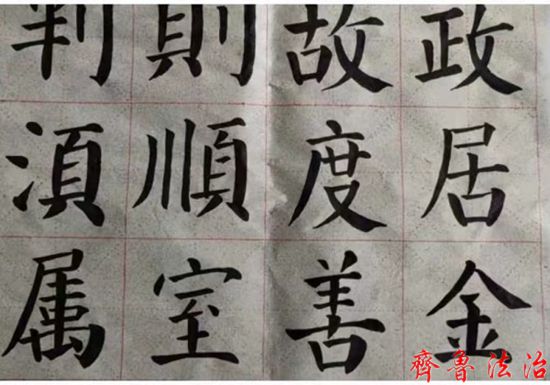 政居金
故度善
則順室
判湏属
齊魯法治